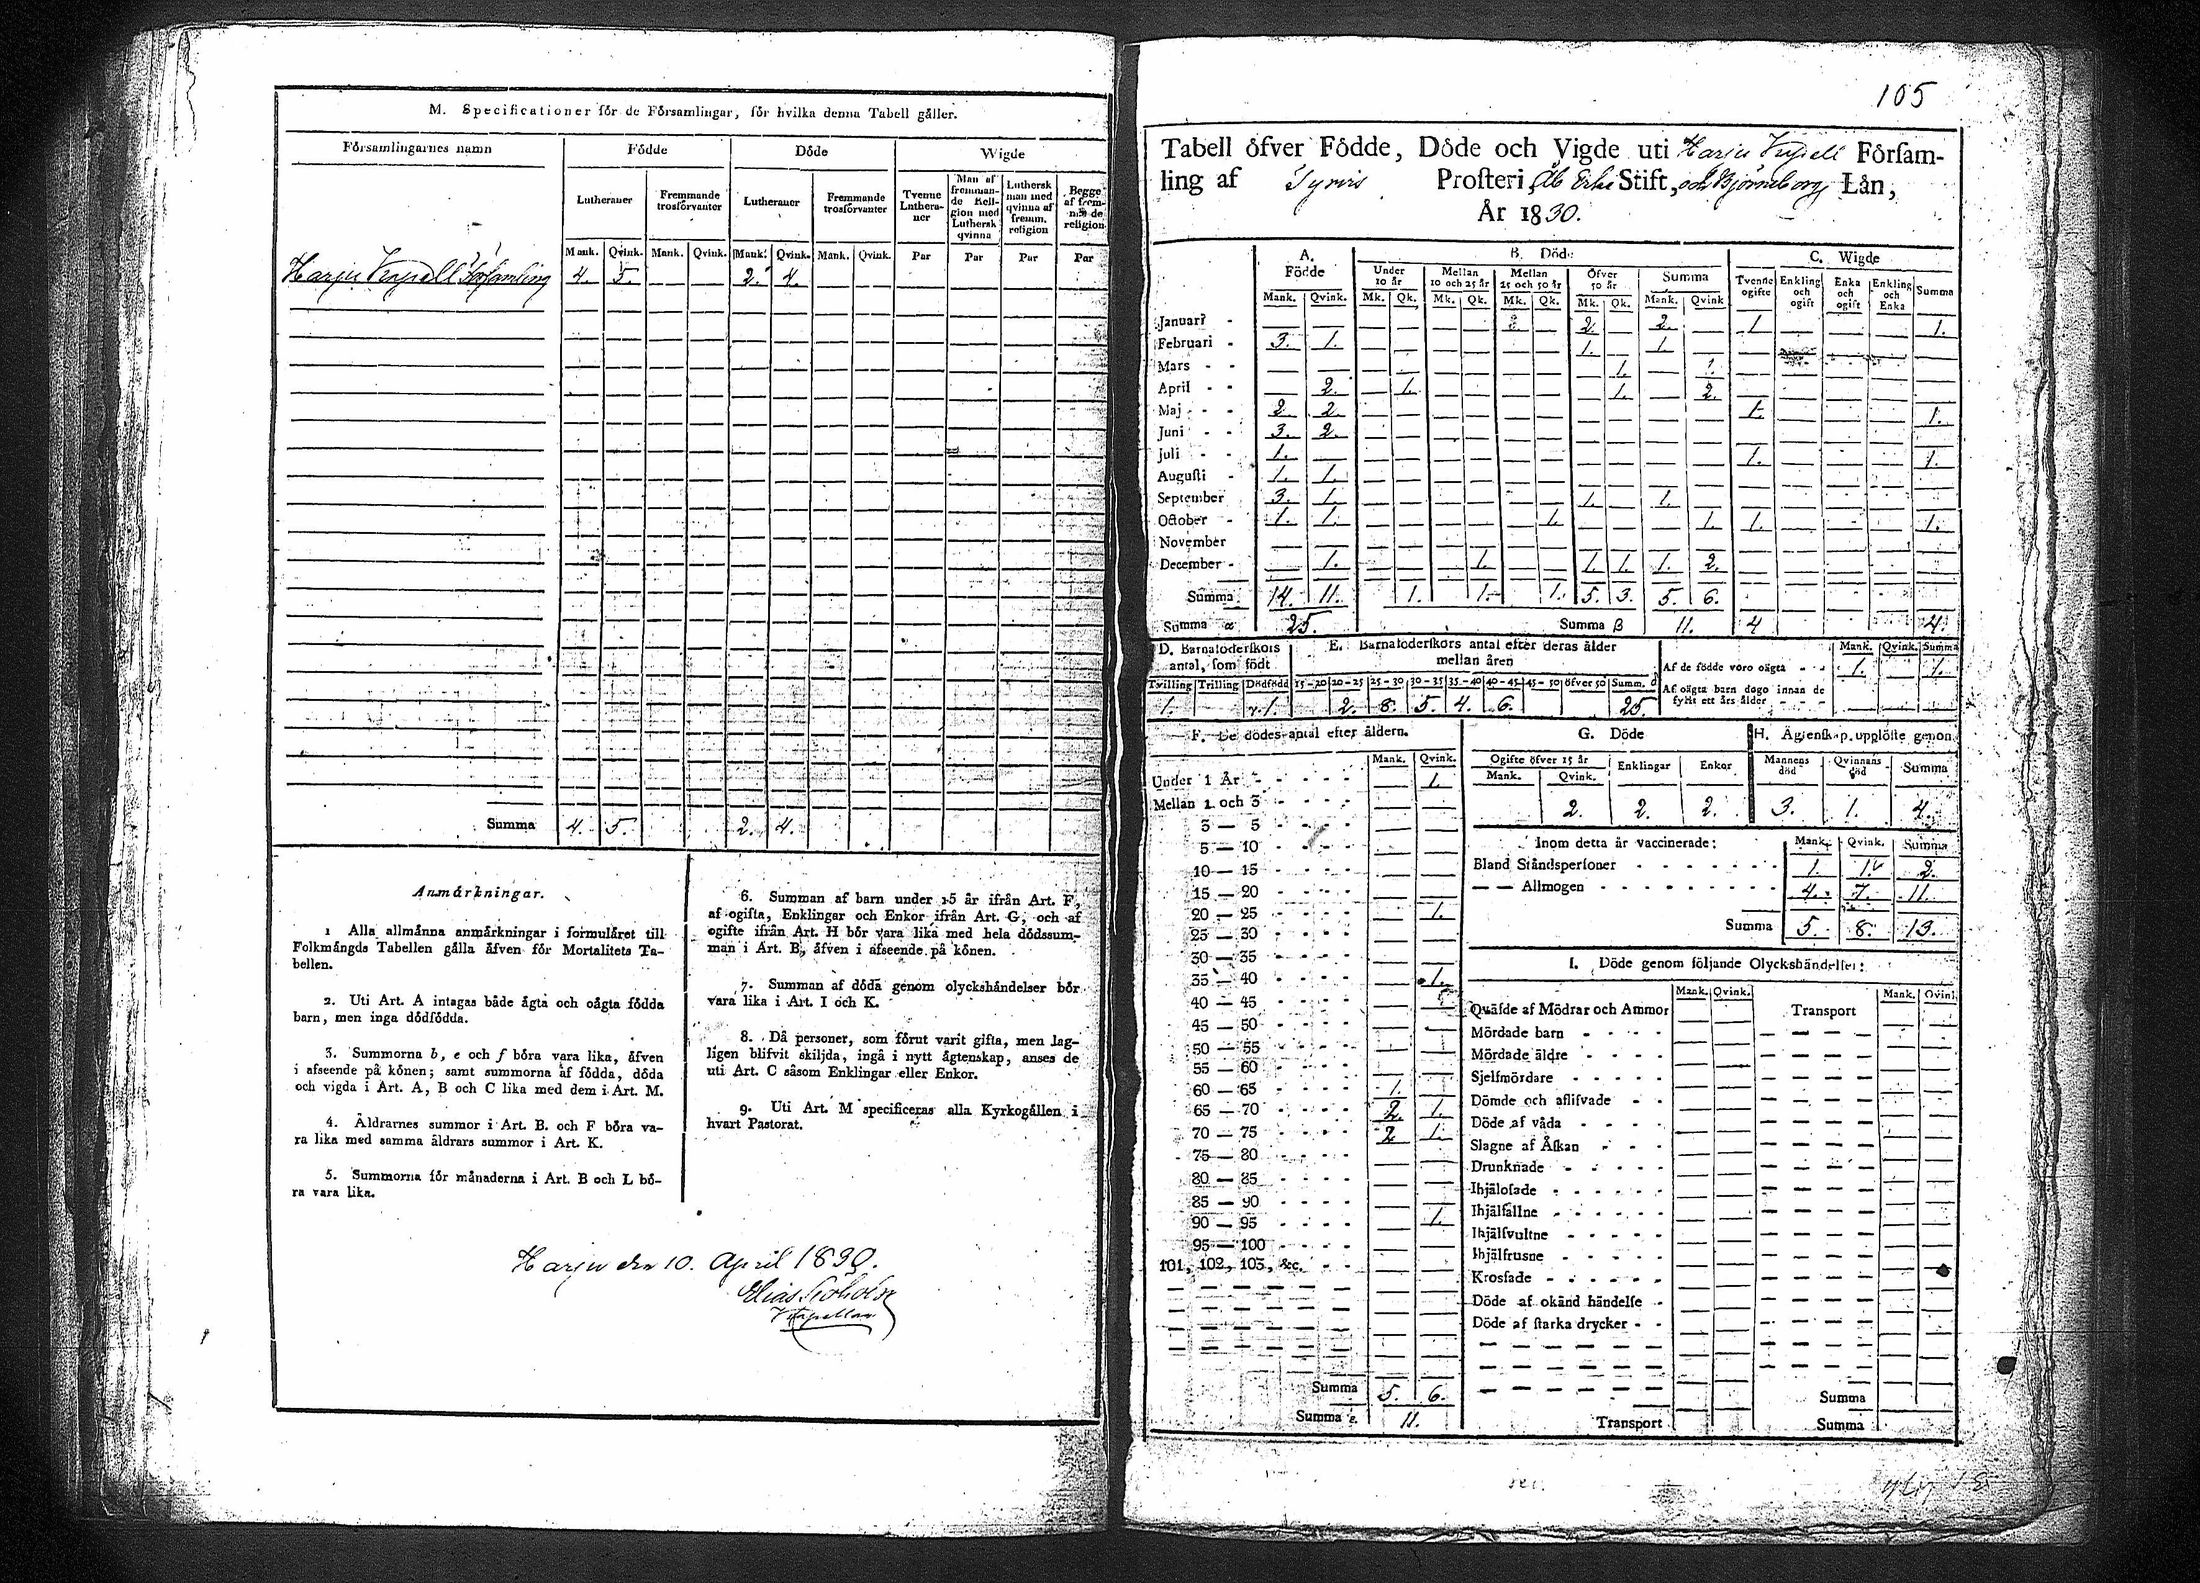 M. Specificationer för de Församlingar, för hvilka denna Tabell gäller.
Församlingarnes namn Födde Döde Wigde
Lutheraner Fremmande trosförvanter Lutheraner Fremmande trosförvanter Tvenne Lutheraner Man af fremmande Religion med Luthersk qvinna Luthersk man med qvinna af fremm. religion Begge af fremmande religion
Mank. Qvink. Mank. Qvink. Mank. Qvink. Mank. Qvink. Par Par Par Par
Harju Kapell Församling 4. 5. 2. 4.
Summa 4. 5. 2. 4.
Anmärkningar.
1 Alla allmänna anmärkningar i formuläret till
Folkmängds Tabellen gälla äfven för Mortalitets Ta-
bellen.
2. Uti Art. A intagas både ägta och oägta födda
barn, men inga dödfödda.
3. Summorna b, e och f böra vara lika, äfven
i afseende på könen; samt summorna af födda, döda
och vigda i Art. A, B och C lika med dem i Art. M.
4. Äldrarnes summor i Art. B. och F böra va-
ra lika med samma äldrars summor i Art. K.
5. Summorna för månaderna i Art. B och L bö-
ra vara lika.
6. Summan af barn under 15 år ifrån Art. F,
af ogifta, Enklingar och Enkor ifrån Art. G, och af
ogifte ifrån Art. H bör vara lika med hela dödssum-
man i Art. B, äfven i afseende på könen.
7. Summan af döda genom olyckshändelser bör
vara lika i Art. I och K.
8. Då personer, som förut varit gifta, men lag-
ligen blifvit skiljda, ingå i nytt ägtenskap, anses de
uti Art. C såsom Enklingar eller Enkor.
9. Uti Art. M specificeras alla Kyrkogällen i
hvart Pastorat.
Harju den 10. April 1830.
Elias
Kapellan
105
Tabell öfver Födde, Döde och Vigde uti Harju Kapell Församling
af Tyrvis Prosteri, Åbo Erke Stift, och Björneborgs Län,
År 1830.
A. Födde B. Döde C. Wigde
Under 10 år Mellan 10 och 25 år Mellan 25 och 50 år Öfver 50 år Summa Tvenne ogifte Enkling och ogift Enka och ogift Enkling och Enka Summa
Mank. Qvink. Mk. Qk. Mk. Qk. Mk. Qk. Mk. Qk. Mank. Qvink
Januari 2. 2. 1. 1.
Februari 3. 1. 1. 1.
Mars 1. 1.
April 2. 1. 1. 2.
Maj 2. 2 1. 1.
Juni 3. 2.
Juli 1. 1. 1.
Augusti 1. 1.
September 3. 1. 1. 1.
October 1. 1. 1. 1. 1. 1.
November
December 1. 1. 1. 1. 1. 2.
Summa 14. 11. 1. 1. 1. 5. 3. 5. 6.
Summa α 25. Summa β 11. 4 4.
D. Barnaföderskors antal, som födt
Tvilling Trilling Dödfödd
1. 1.
E. Barnaföderskors antal efter deras ålder mellan åren
15-20 20-25 25-30 30-35 35-40 40-45 45-50 öfver 50 Summ.
2. 8. 5. 4. 6. 25.
Mank. Qvink. Summa
Af de födde voro oägta 1. 1.
Af oägta barn dogo innan de fyllt ett års ålder
F. De dödes antal efter åldern.
Mank. Qvink.
Under 1 År 1.
Mellan 1 och 3
3 — 5
5 — 10
10 — 15
15 — 20
20 — 25 1.
25 — 30
30 — 35
35 — 40 1.
40 — 45
45 — 50
50 — 55
55 — 60
60 — 65 1.
65 — 70 2. 1.
70 — 75 2 1.
75 — 80
80 — 85
85 — 90
90 — 95 1.
95 — 100
101, 102, 103, &c.
Summa 5. 6.
Summa e. 11.
G. Döde
Ogifte öfver 15 år Enklingar Enkor
Mank. Qvink.
2. 2. 2.
H. Ägtenskap upplöste genom
Mannens död Qvinnans död Summa
3. 1. 4.
Inom detta år vaccinerade: Mank. Qvink. Summa
Bland Ståndspersoner 1. 1. 2.
— — Allmogen 4. 7. 11.
Summa 5. 8. 13.
I. Döde genom följande Olyckshändelser:
Mank. Qvink. Mank. Qvink
Quäfde af Mödrar och Ammor Transport
Mördade barn
Mördade äldre
Sjelfmördare
Dömde och aflifvade
Döde af våda
Slagne af Åskan
Drunknade
Ihjälosade
Ihjälfallne
Ihjälsvultne
Ihjälfrusne
Krosfade
Döde af okänd händelse
Döde af starka drycker
Summa
Transport Summa